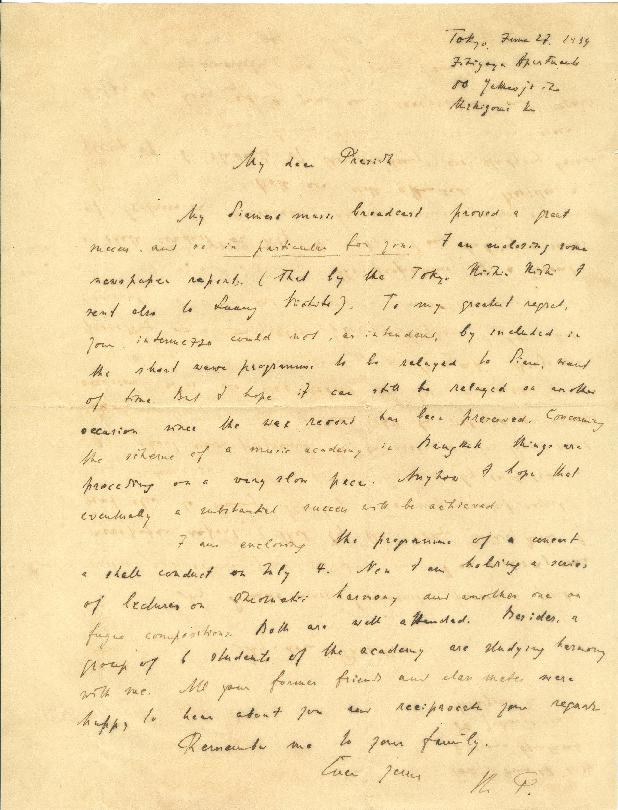 Tokyo, June 27. 1939
Apartments
80
My dear Prasidh
My Siamese music broadcast proved a great
success, and so in particular for you. I am enclosing some
newspaper reports. (That by the Tokyo Nichi Nichi I
sent also to Luang Vichitr). To my greatest regret,
your intermezzo could not, as intended, by included in
the short wave programme to be relayed to Siam, want
of time. But I hope it can still be relayed on another
occasion since the wax record has been preserved. Concerning
the scheme of a music academy in Bangkok things are
proceeding on a very slow pace. Anyhow I hope that
eventually a substantial success will be achieved.
I am enclosing the programme of a concert
a shall conduct on July 4. Now I am holding a series
of lectures on chromatic harmony and another one on
fugue composition. Both are well attended. Besides, a
group of 6 students of the academy are studying harmony
with me. All your former friends and class mates were
happy to hear about you and reciprocate your regards
Remember me to your family.
Ever yours
P.